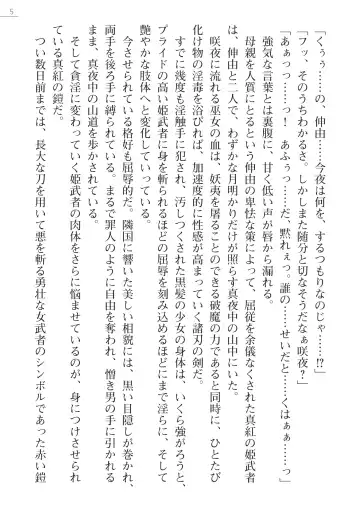 5
「くぅぅ……の、伸由……今夜は何を、するつもりなのじゃ……!?」
「フッ、そのうちわかるさ。しかしまた随分と切なそうだなぁ咲夜？」
「あぁっ……っ！　あふぅっ……だ、黙れぇっ。誰の……せいだと……くはぁぁ……っ」
強気な言葉とは裏腹に、甘く低い声が唇から漏れる。
母親を人質にとるという伸由の卑怯な策によって、屈従を余儀なくされた真紅の姫武者
は、伸由と二人で、わずかな月明かりだけが照らす真夜中の山中にいた。
咲夜に流れる巫女の血は、妖夷を屠ることのできる破魔の力であると同時に、ひとたび
化け物の淫毒を浴びれば、加速度的に性感が高まっていく諸刃の剣だ。
すでに幾度も淫触手に犯され、汚しつくされた黒髪の少女の身体は、いくら強がろうと、
プライドの高い姫武者に身を斬られるほどの屈辱を刻み込めるほどにまで淫らに、そして
艶やかな肢体へと変化していっている。
今させられている格好も屈辱的だ。隣国に響いた美しい相貌には、黒い目隠しが巻かれ、
両手を後ろ手に縛られている。まるで罪人のように自由を奪われ、憎き男の手に引かれる
まま、真夜中の山道を歩かされている。
そして貪淫に変わっていく姫武者の肉体をさらに悩ませているのが、身につけさせられ
ている真紅の鎧だ。
つい数日前までは、長大な刀を用いて悪を斬る勇壮な女武者のシンボルであった赤い鎧